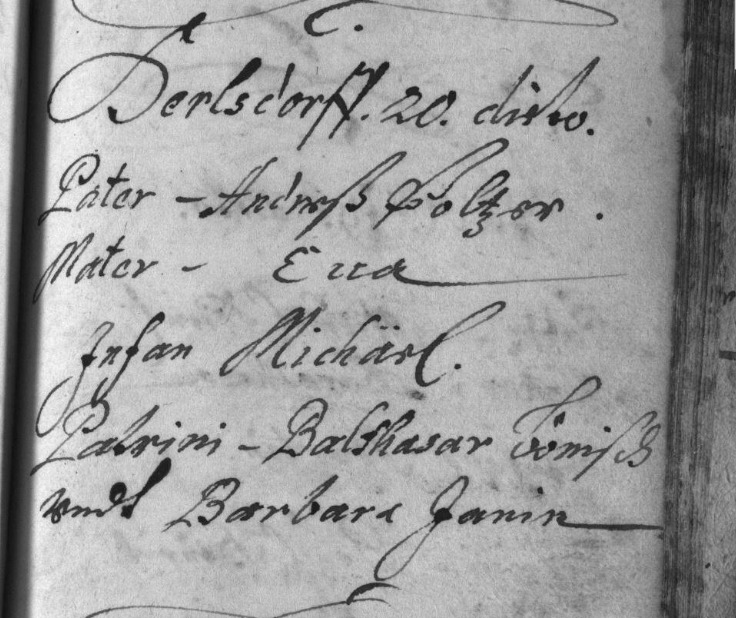 Herlsdorff. 20. ditto.
Pater - Andreß Holtzer.
Mater - Eua
Infan Michäel.
Patrini - Balthasar Tönisch
vndt Barbara Janin